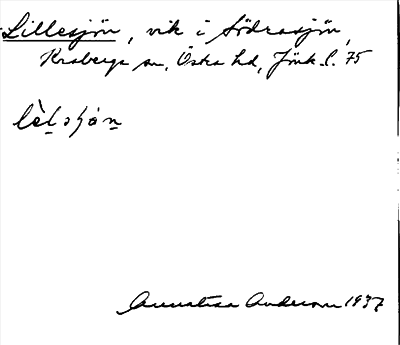 Lillesjön, vik i Södrasjön,
Kråkerga sn, Östra hd, Jönk. l. 75
lèlsjön
Annalisa Anderson 1937